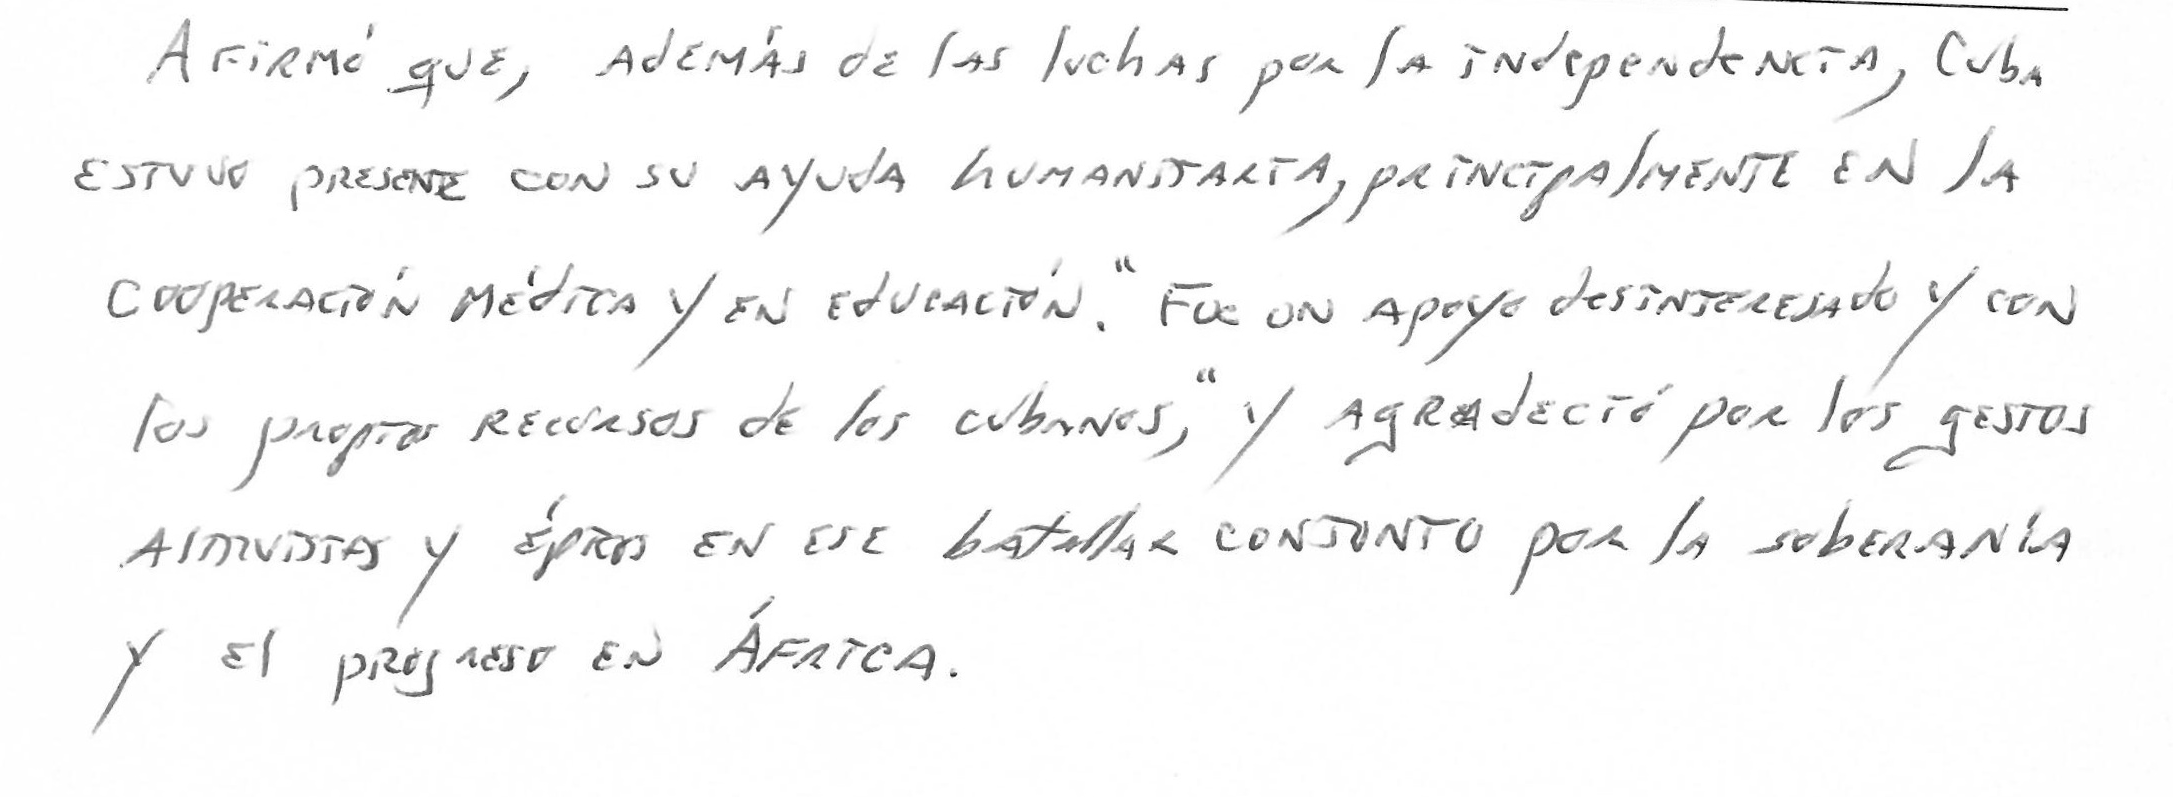 Afirmó que, además de las luchas por la independencia, Cuba
estuvo presente con su ayuda humanitaria, principalmente en la
cooperación médica y en educación. "Fue un apoyo desinteresado y con
los propios recursos de los cubanos," y agradeció por los gestos
altruistas y épicos en ese batallar conjunto por la soberanía
y el progreso en África.